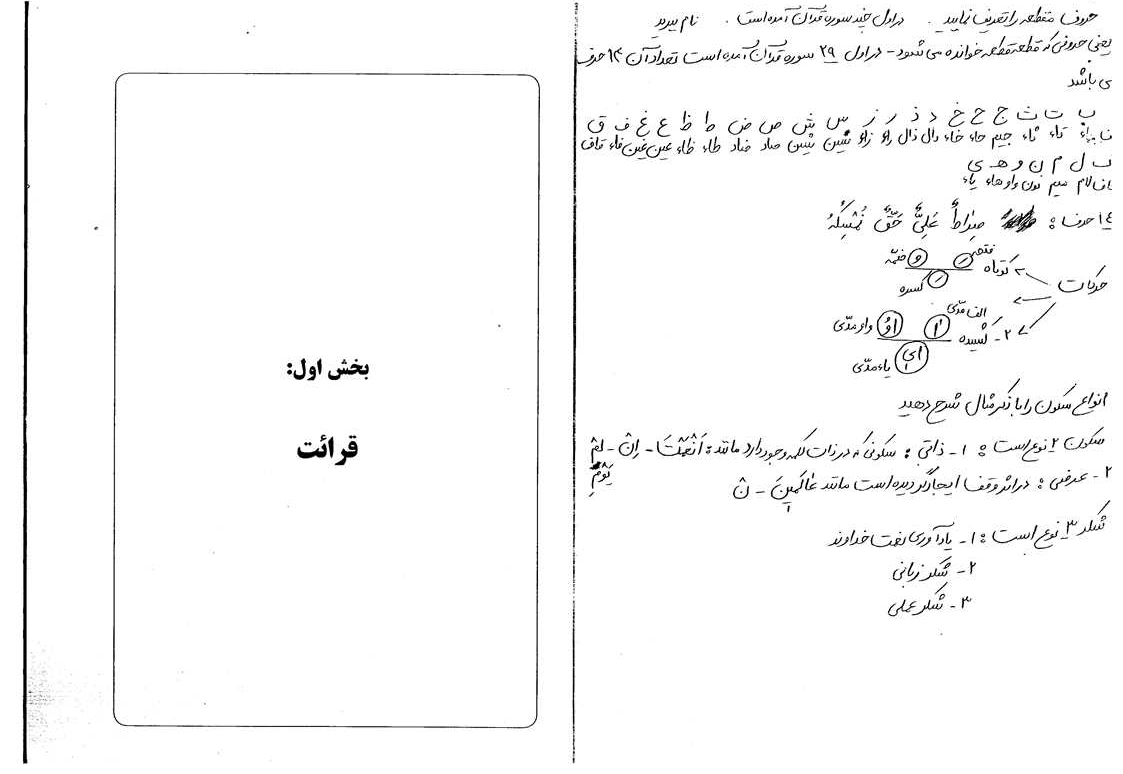 حروف مقطعه را تعریف نمایید. در اول چند سوره قرآن آمده است. نام ببرید
یعنی حروفی که قطعه قطعه خوانده می شود - در اول ۲۹ سوره قرآن آمده است تعداد آن ۱۴ حرف
می باشد
ب ت ث ج ح خ د ذ ر ز س ش ص ض ط ظ ع غ ف ق
باء تاء ثاء جیم حاء خاء دال ذال راء زاء سین شین صاد ضاد طاء ظاء عین غین فاء قاف
ک ل م ن و ه ی
کاف لام میم نون واو هاء یاء
۱٤ حرف : صِراطُ عَلِیٍّ حَقٌّ نُمْسِکُهُ
حرکات
۱- کوتاه فتحه ضمّه
کسره
۲- کشیده الف مدّی ا اوُ واو مدّی
ای یاء مدّی
انواع سکون را با ذکر مثال شرح دهید
سکون ۲ نوع است : ۱- ذاتی : سکونی که در ذات کلمه وجود دارد مانند : اَنْعَمْتَ - اِنْ - لَمْ
یَوْمِ
۲- عرضی : در اثر وقف ایجاد گردیده است مانند عالَمینَ - نْ
شکر ۳ نوع است : ۱- یادآوری نعمت خداوند
۲- شکر زبانی
۳- شکر عملی
بخش اول:
قرائت